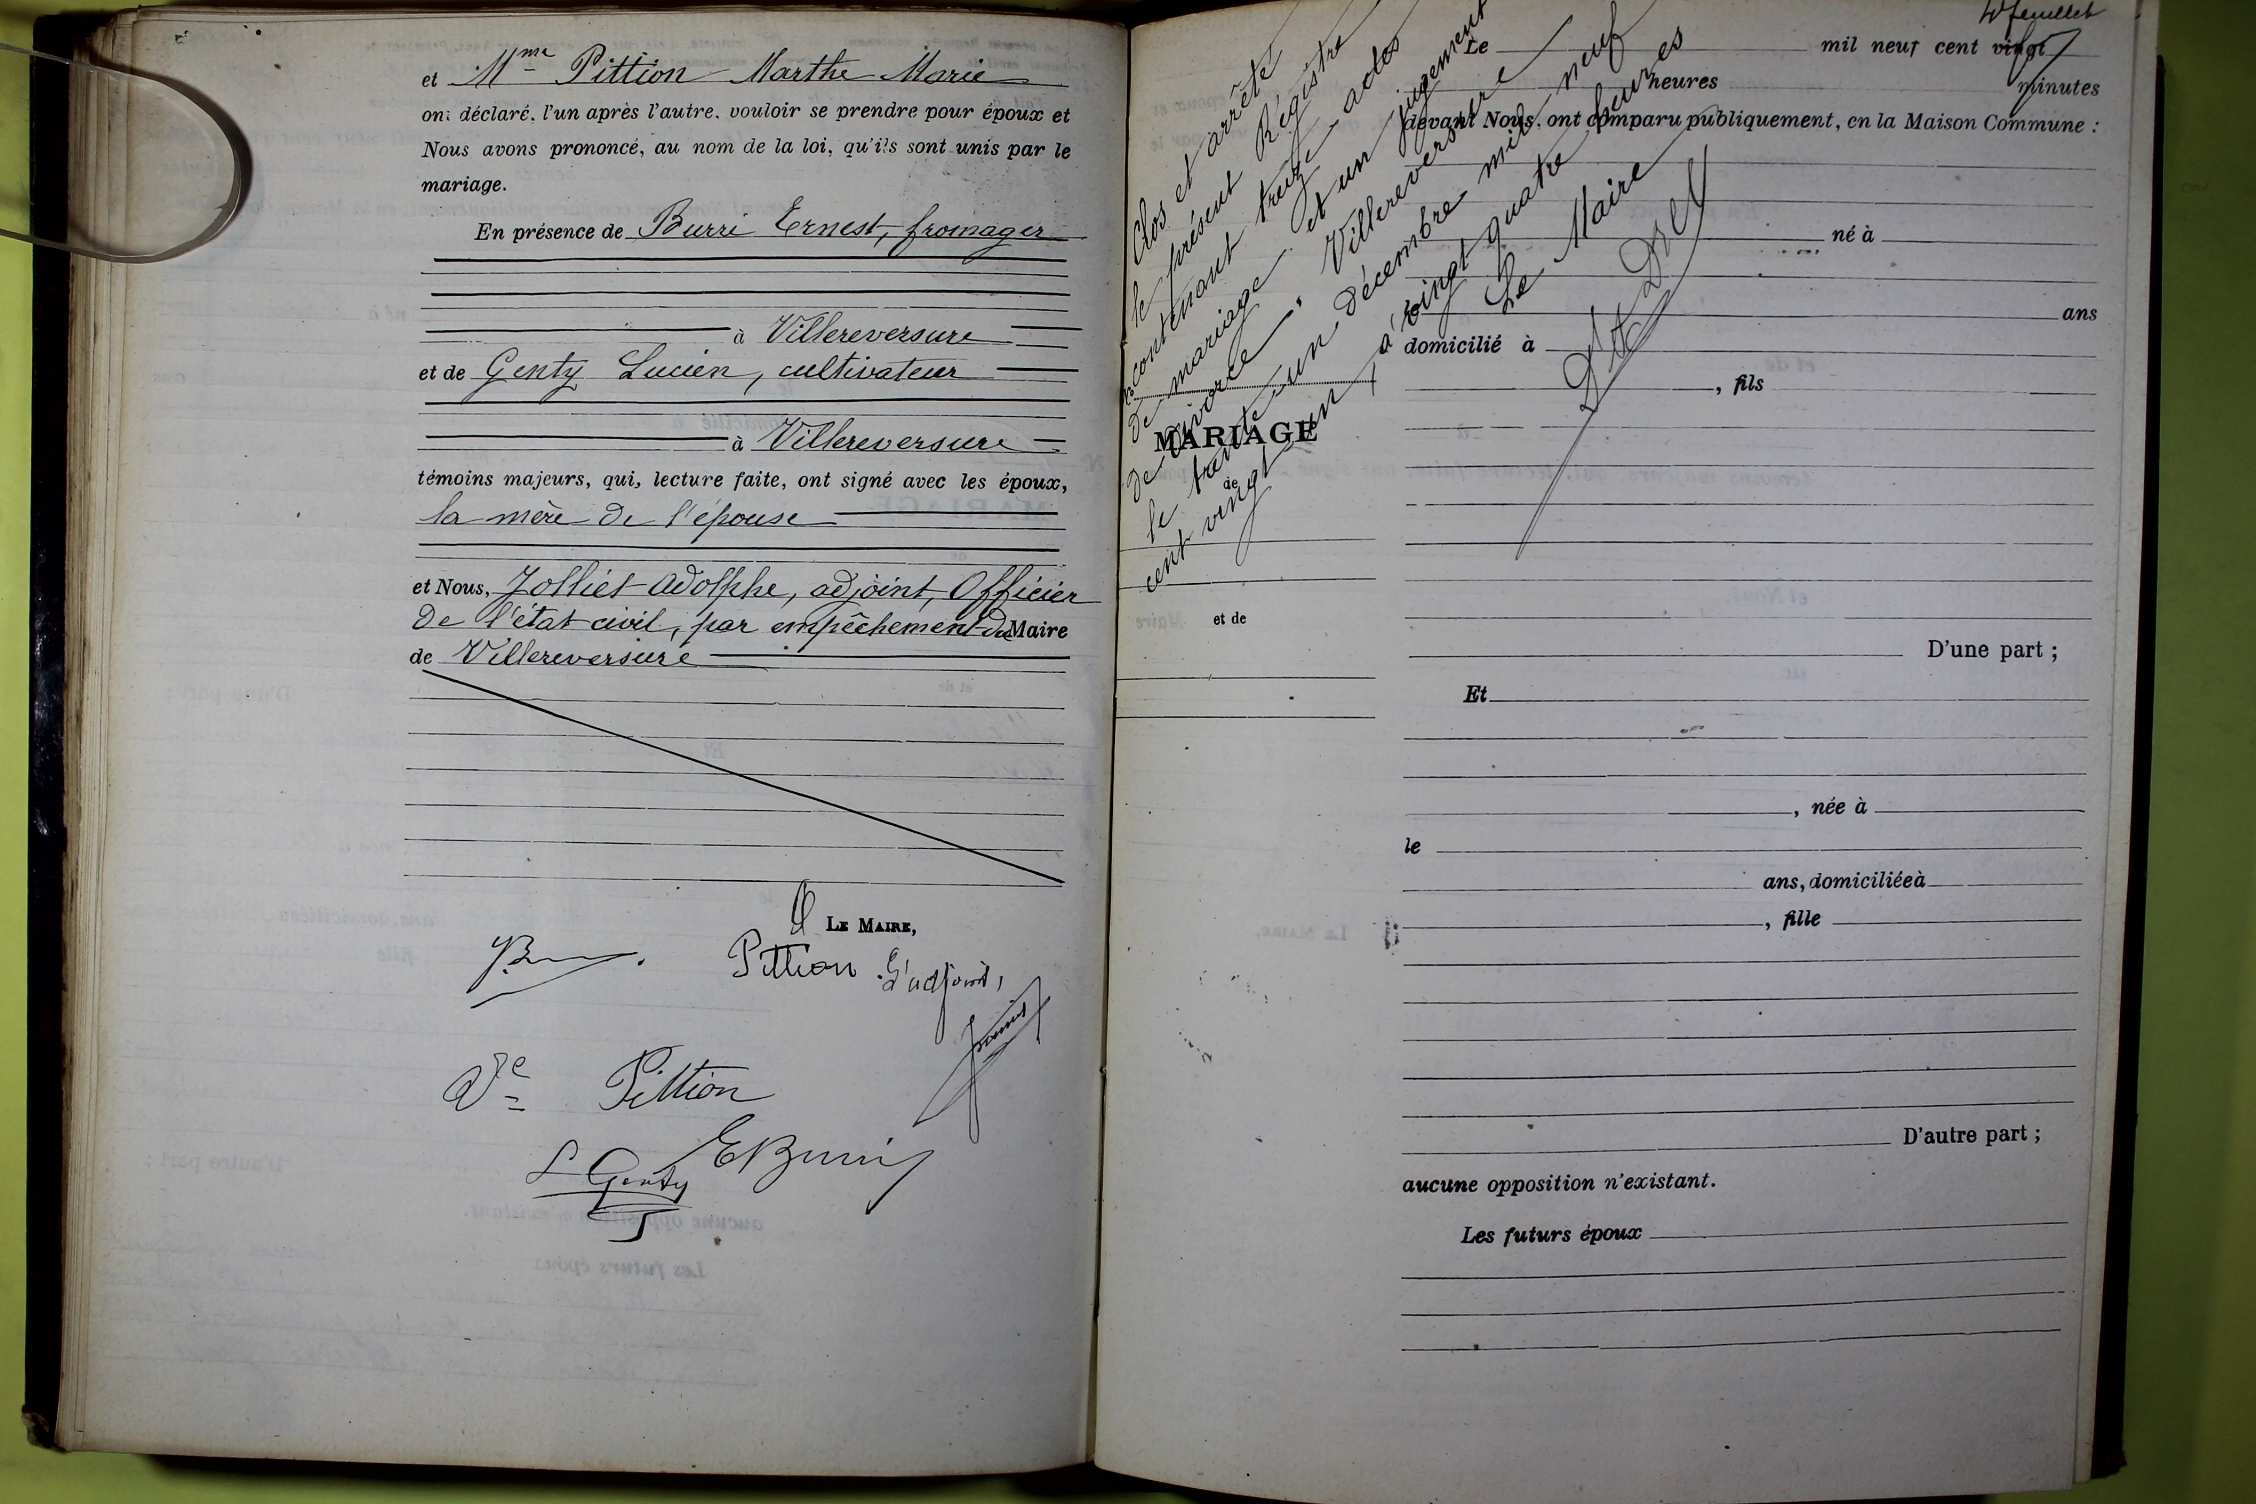 et Mme Pittion Marthe Marie
ont déclaré, l'un après l'autre, vouloir se prendre pour époux et
Nous avons prononcé, au nom de la loi, qu'ils sont unis par le
mariage.
En présence de Burri Ernest, fromager
à Villereversure
et de Genty Lucien, cultivateur
à Villereversure
témoins majeurs, qui, lecture faite, ont signé avec les époux,
la mère de l'épouse
et Nous, Jolliet Adolphe, adjoint, Officier
de l'état civil, par empêchement du Maire
de Villereversure
LE MAIRE,
Pittion L'adjoint,
Ve Pittion
EBurri
L Genty
feuillet
Le mil neuf cent vingt
heures minutes
devant Nous, ont comparu publiquement, en la Maison Commune :
né à
ans
domicilié à
, fils
D'une part ;
Et
, née à
le
ans, domiciliée à
, fille
D'autre part ;
aucune opposition n'existant.
Les futurs époux
MARIAGE
de
et de
Clos et arrêté
le présent Régistre
contenant treize actes
de mariage et un jugement
de divorce, Villereversure
le trente-un décembre mil neuf
cent vingt un, à vingt quatre heures
Le Maire